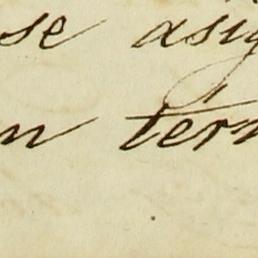 se asig
n tern